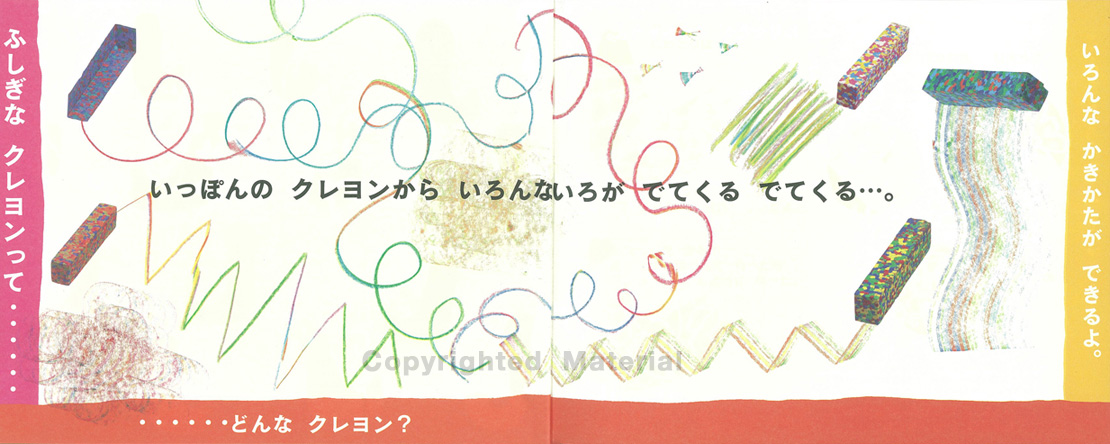 ふしぎな クレヨンって・・・・・・・
・・・・・・どんな クレヨン？
いっぽんの クレヨンから いろんないろが でてくる でてくる…。
いろんな かきかたが できるよ。
Copyrighted Material